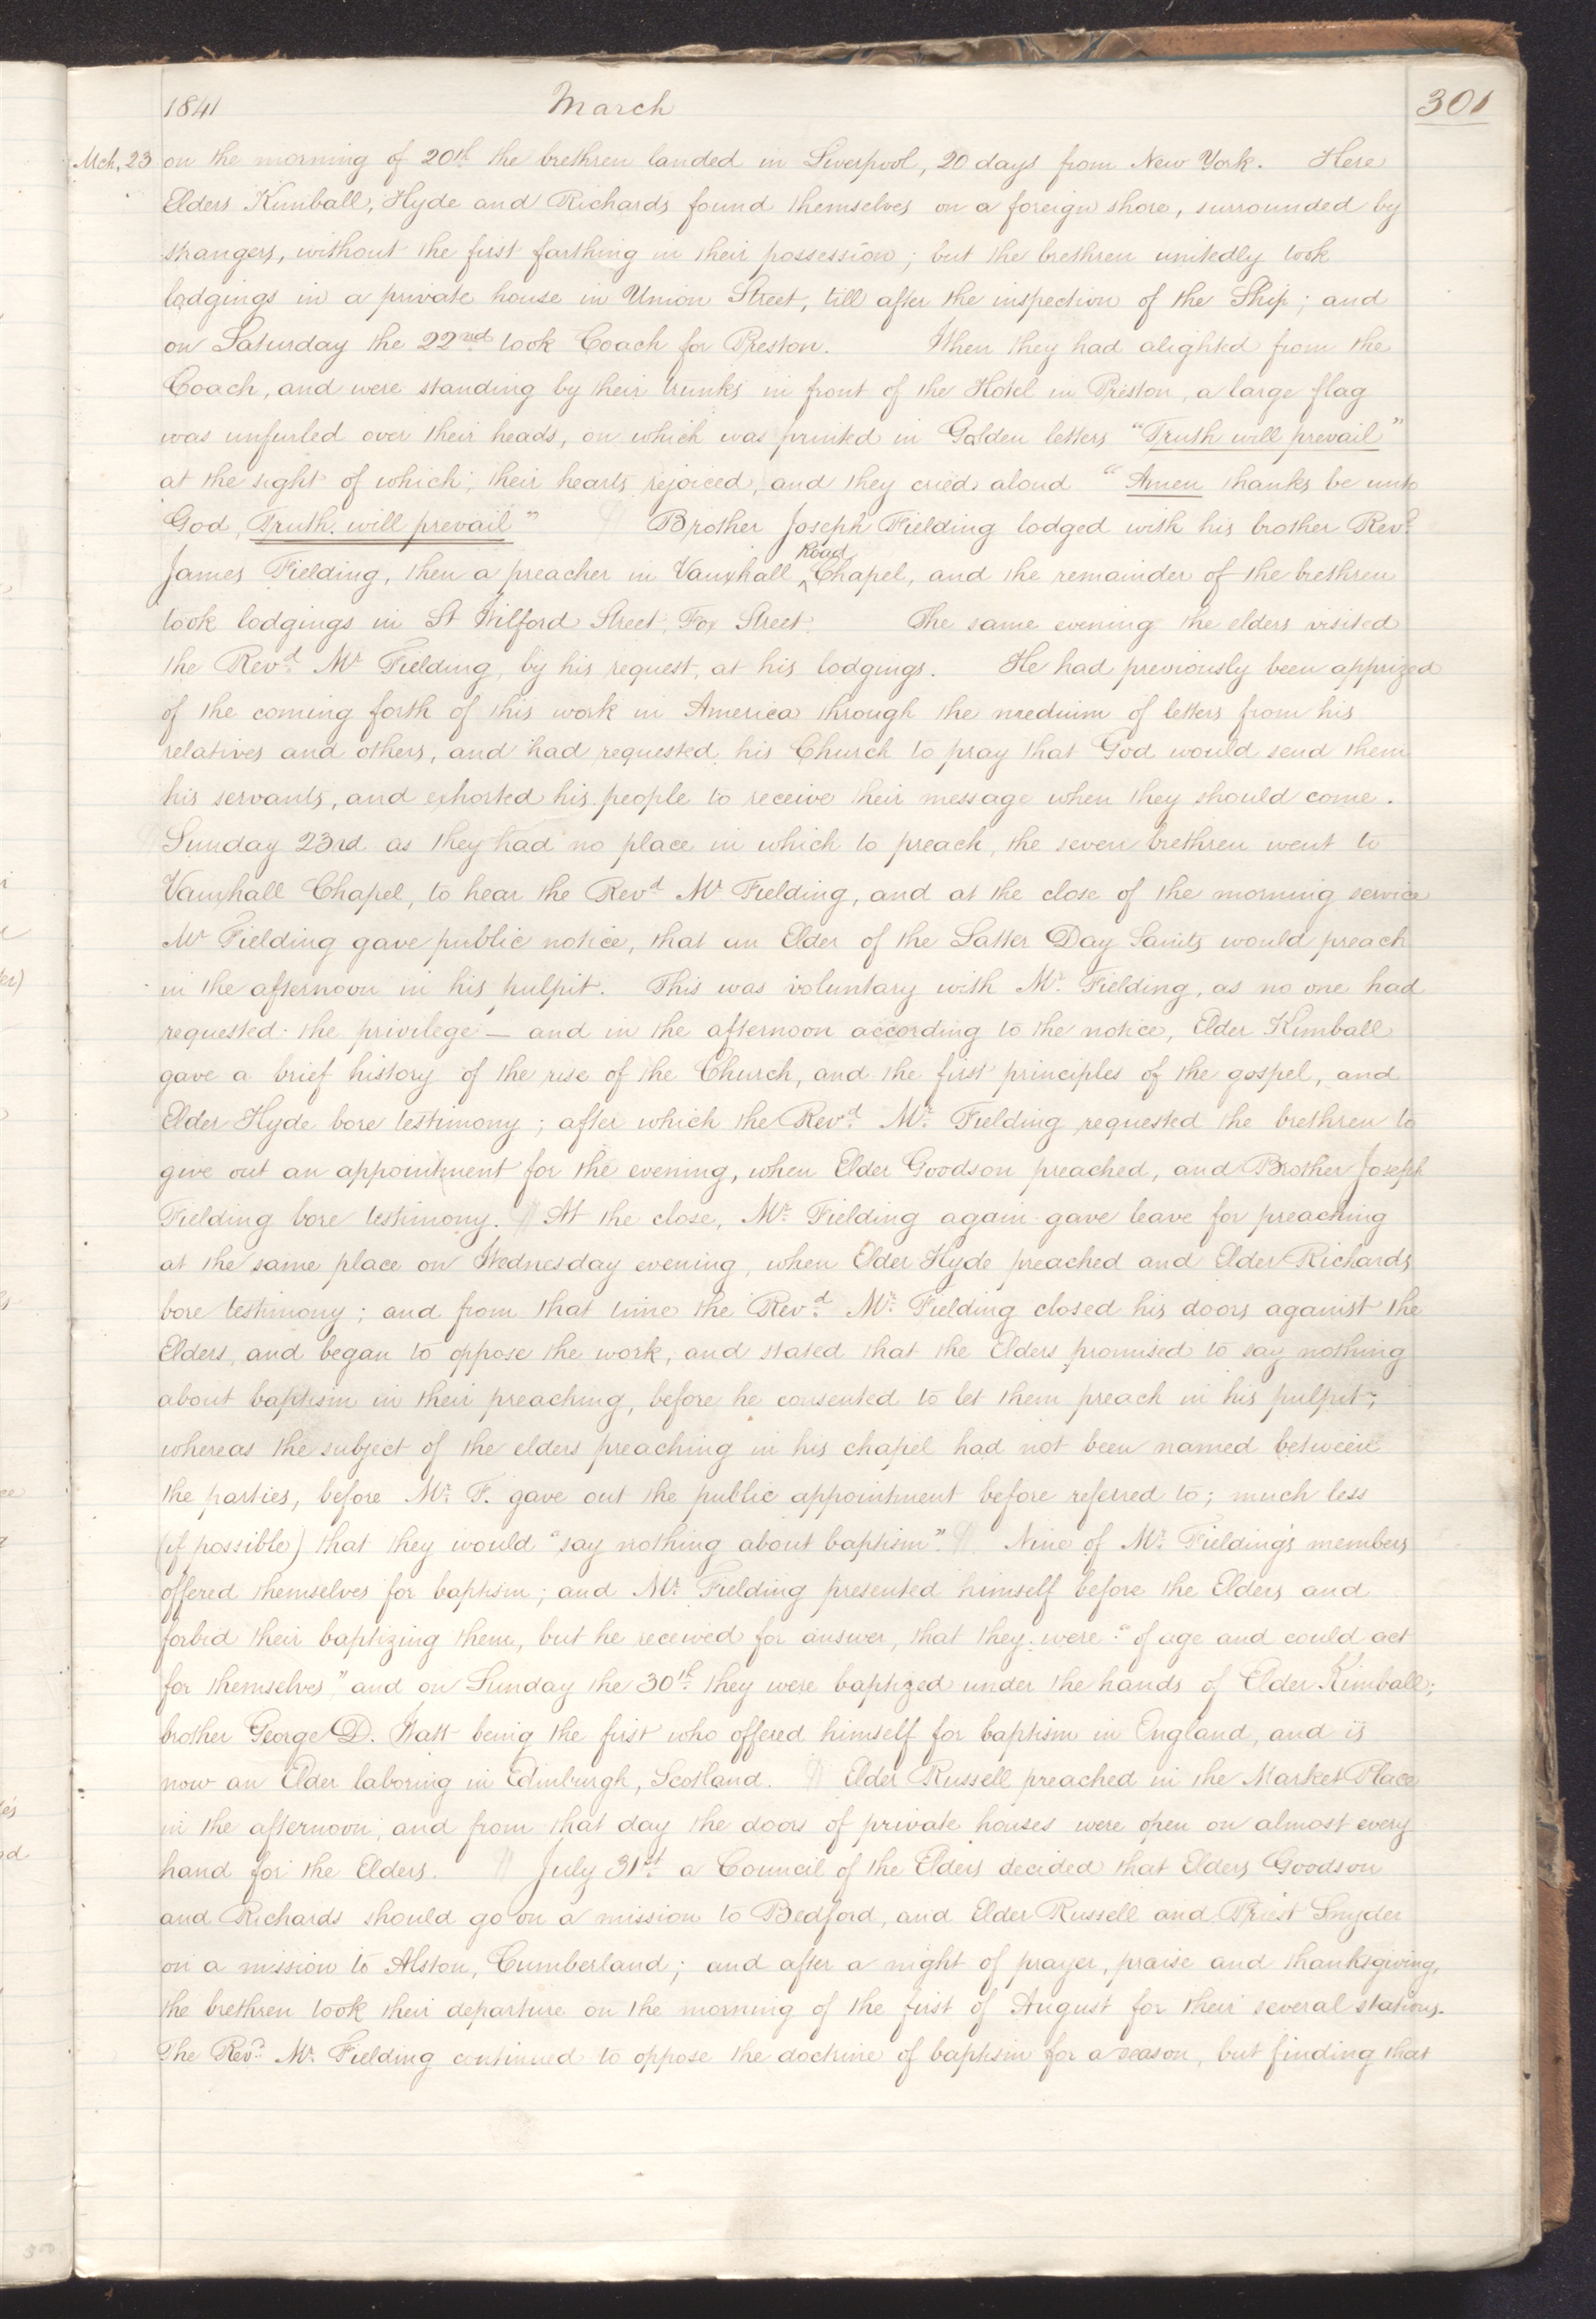 1841 March 301
Mch. 23 on the morning of 20th the brethren landed in Liverpool, 20 days from New York. Here
Elders Kimball, Hyde and Richards found themselves on a foreign shore, surrounded by
strangers, without the first farthing in their possession; but the brethren unitedly took
lodgings in a private house in Union Street, till after the inspection of the Ship; and
on Saturday the 22nd took Coach for Preston. When they had alighted from the
Coach, and were standing by their trunks in front of the Hotel in Preston, a large flag
was unfurled over their heads, on which was printed in Golden letters "Truth will prevail"
at the sight of which, their hearts rejoiced, and they cried aloud "Amen thanks be unto
God, Truth will prevail" ¶ Brother Joseph Fielding lodged with his brother Revd.
James Fielding, then a preacher in Vauxhall ^Road Chapel, and the remainder of the brethren
took lodgings in St Wilford Street, Fox Street. The same evening the elders visited
the Revd. Mr Fielding, by his request, at his lodgings. He had previously been apprized
of the coming forth of this work in America through the medium of letters from his
relatives and others, and had requested his Church to pray that God would send them
his servants, and exhorted his people to receive their message when they should come.
¶ Sunday 23rd as they had no place in which to preach, the seven brethren went to
Vauxhall Chapel, to hear the Revd Mr Fielding, and at the close of the morning service
Mr Fielding gave public notice, that an Elder of the Latter Day Saints would preach
in the afternoon in his pulpit. This was voluntary with Mr. Fielding, as no one had
requested the privilege — and in the afternoon according to the notice, Elder Kimball
gave a brief history of the rise of the Church, and the first principles of the gospel, and
Elder Hyde bore testimony; after which the Revd. Mr. Fielding requested the brethren to
give out an appointment for the evening, when Elder Goodson preached, and Brother Joseph
Fielding bore testimony. ¶ At the close, Mr. Fielding again gave leave for preaching
at the same place on Wednesday evening, when Elder Hyde preached and Elder Richards
bore testimony; and from that time the Revd. Mr. Fielding closed his doors against the
Elders, and began to oppose the work, and stated that the Elders promised to say nothing
about baptism in their preaching, before he consented to let them preach in his pulpit;
whereas the subject of the elders preaching in his chapel had not been named between
the parties, before Mr. F. gave out the public appointment before referred to; much less
(if possible) that they would "say nothing about baptism". ¶ Nine of Mr. Fielding's members
offered themselves for baptism; and Mr. Fielding presented himself before the Elders and
forbid their baptizing them, but he received for answer, that they were "of age and could act
for themselves," and on Sunday the 30th. they were baptized under the hands of Elder Kimball;
brother George D. Watt being the first who offered himself for baptism in England, and is
now an Elder laboring in Edinburgh, Scotland. ¶ Elder Russell preached in the Market Place
in the afternoon, and from that day the doors of private houses were open on almost every
hand for the Elders. ¶ July 31st. a Council of the Elders decided that Elders Goodson
and Richards should go on a mission to Bedford, and Elder Russell and Priest Snyder
on a mission to Alston, Cumberland; and after a night of prayer, praise and thanksgiving,
the brethren took their departure on the morning of the first of August for their several stations.
The Revd. Mr. Fielding continued to oppose the doctrine of baptism for a season, but finding that